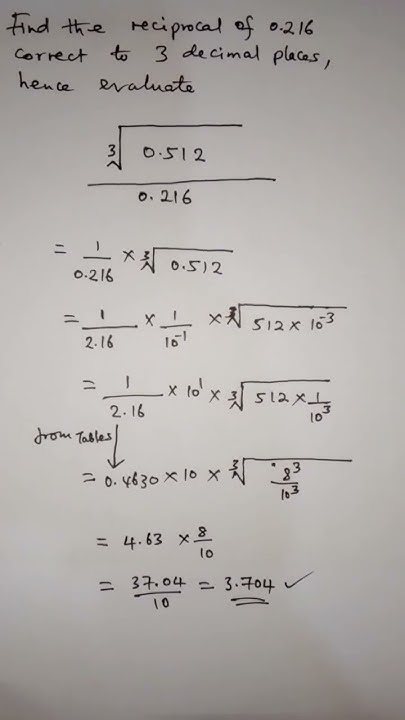 Find the reciprocal of 0.216
correct to 3 decimal places,
hence evaluate
∛0.512
0.216
= 1/0.216 × ∛0.512
= 1/2.16 × 1/10⁻¹ × ∛512 × 10⁻³
= 1/2.16 × 10¹ × ∛512 × 1/10³
from Tables
= 0.4630 × 10 × ∛8³/10³
= 4.63 × 8/10
= 37.04/10 = 3.704 ✓